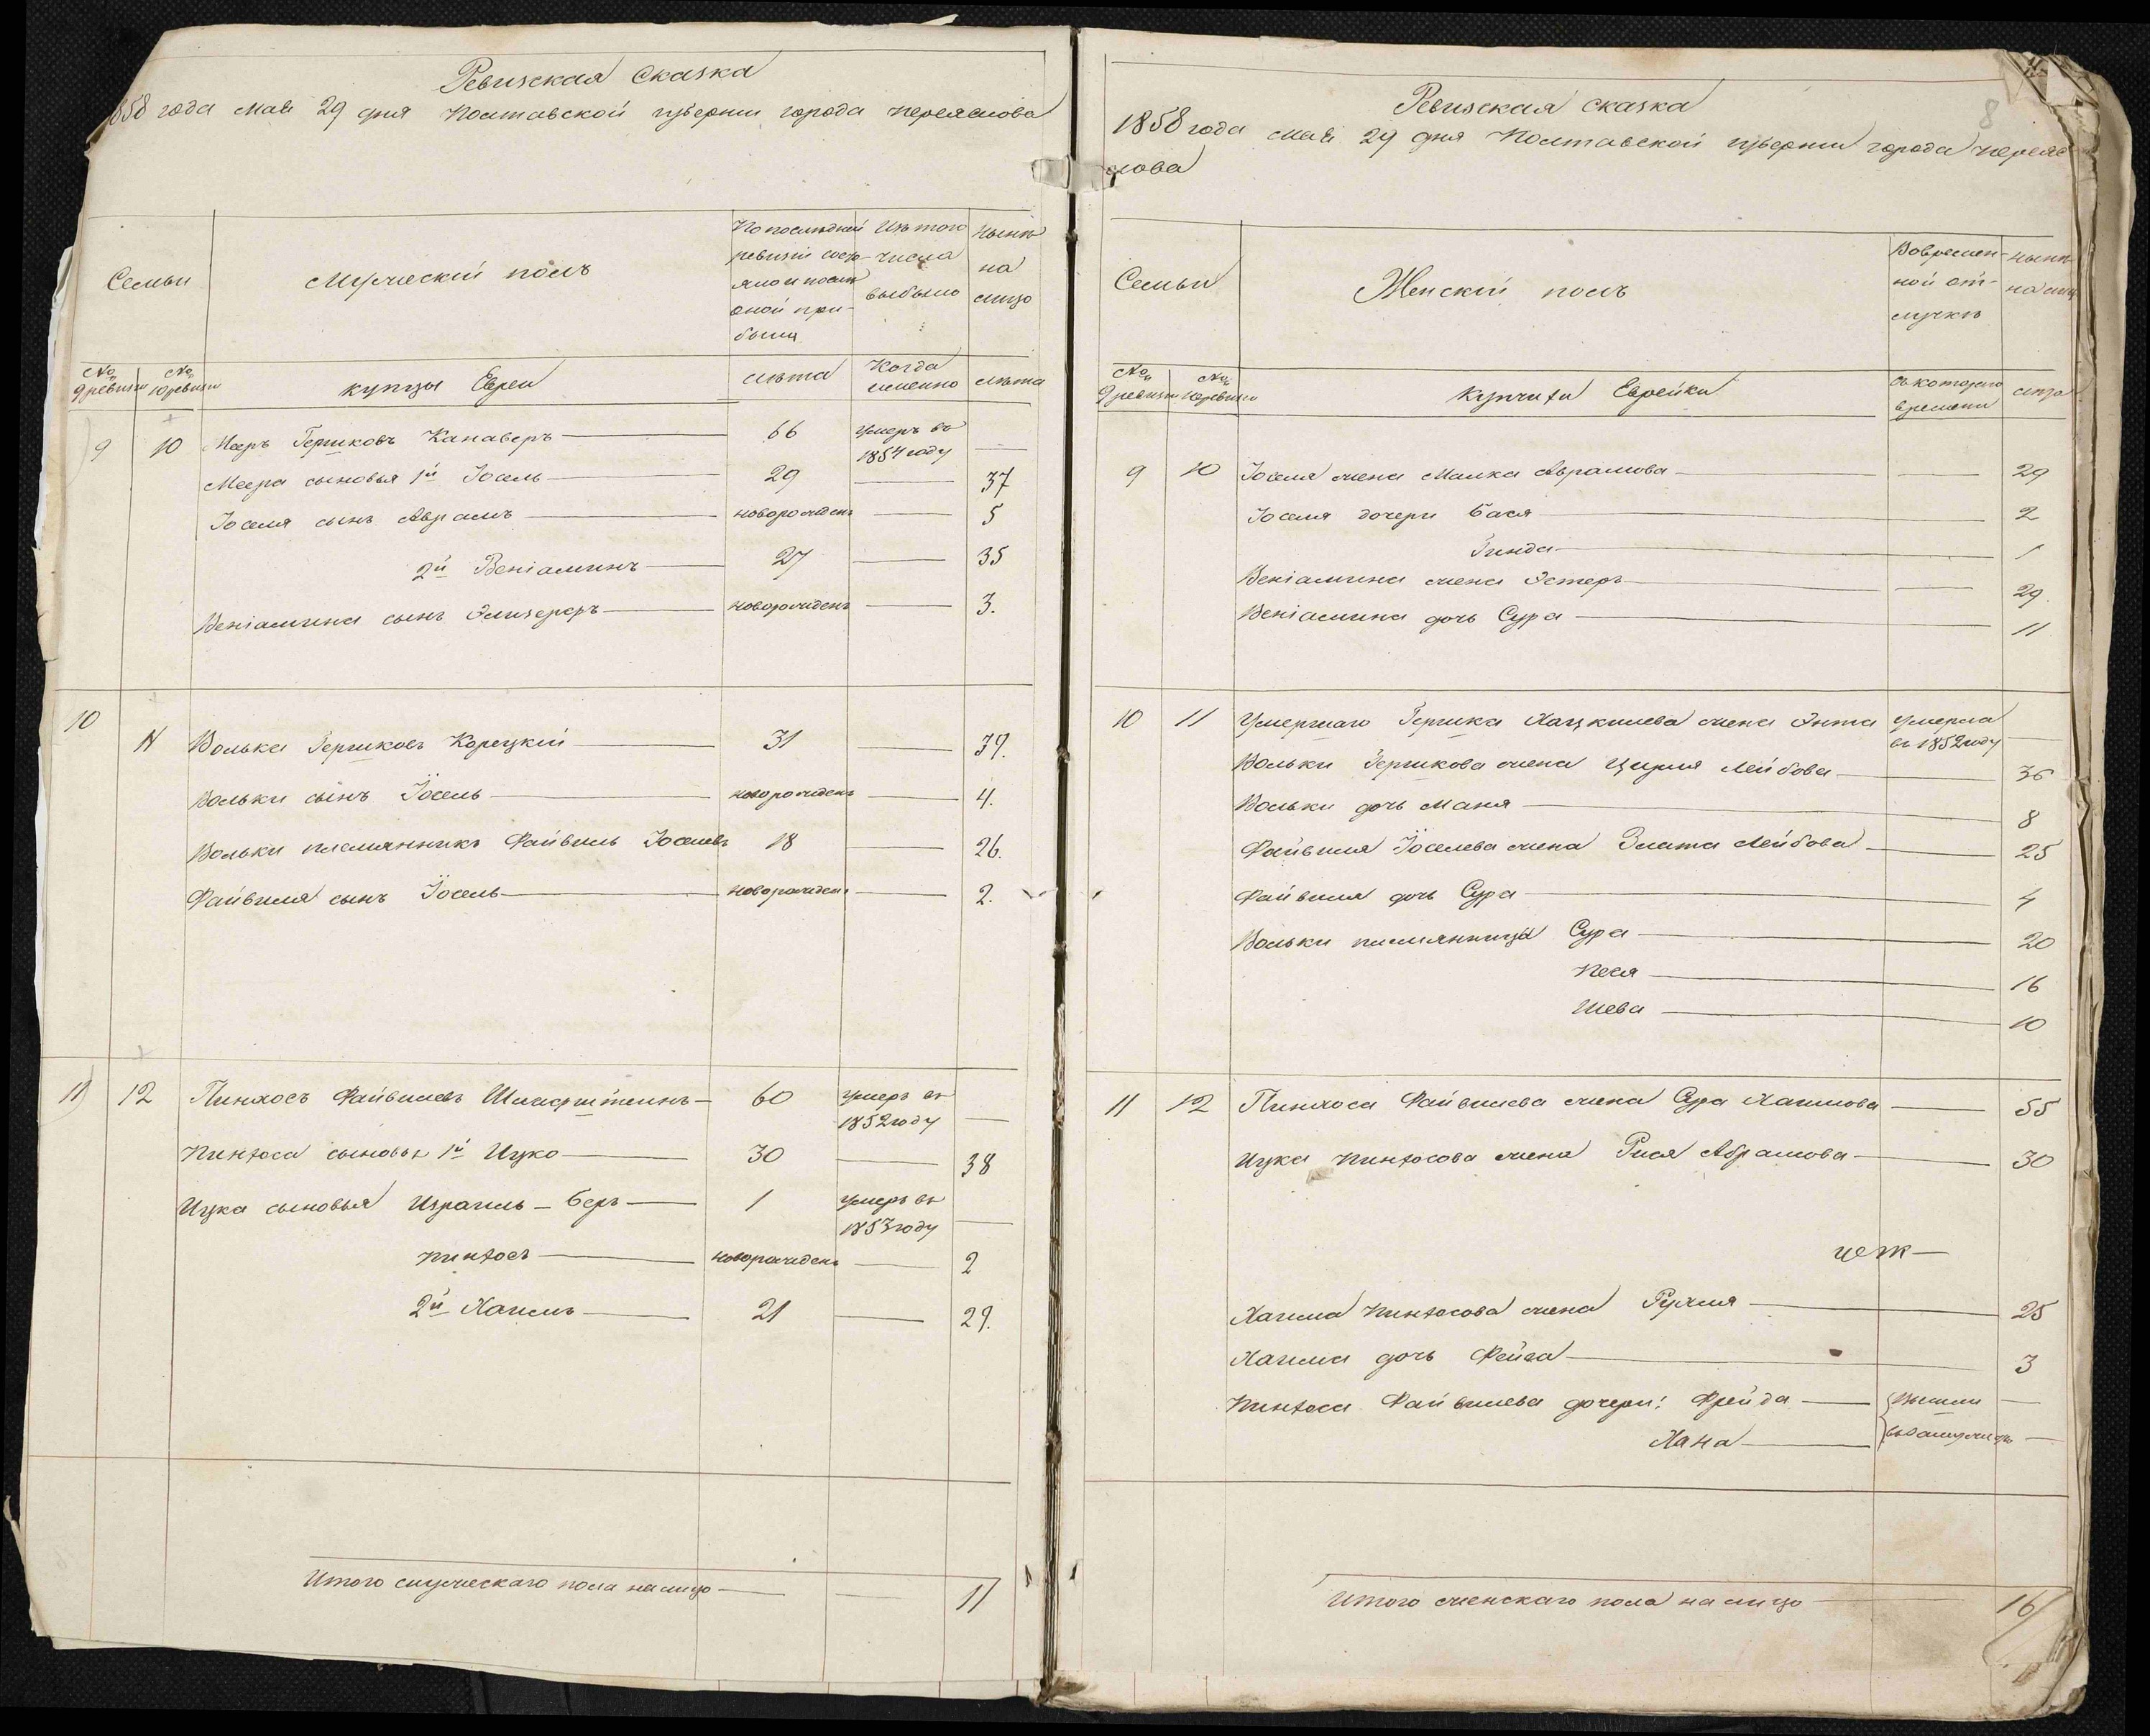 Ревизская Сказка
1858 года Мая 29 дня Полтавской губернии города Переяслова
Семьи
Мужеский полъ
По последней
ревизіи состо-
яло и после
оной при-
было
Изъ того
числа
выбыло
Ныне
на
лицо
№
9 ревизіи
№
10 ревизіи
купцы Евреи
лета
Когда
именно
лета
9 10 Мееръ Гершковъ Канаверъ — 66 умеръ въ 1854 году —
Меера сыновья 1й Іосель — 29 — 37
Іоселя сынъ Абрамъ — новорожденъ — 5
2й Веніаминъ — 27 — 35
Веніамина сынъ — новорожденъ — 3.
10 11 Волька Гершковъ Корецкій — 31 — 39.
Вольки сынъ Іосель — новорожденъ — 4.
Вольки племянникъ Файвиль Іоселевъ 18 — 26.
Файвиля сынъ Іосель — новорожденъ — 2.
11 12 Пинхосъ Файвилевъ — 60 умеръ въ 1852 году —
Пинхоса сыновья 1й Ицко — 30 — 38
Ицка сыновья Израиль-Беръ — 1 умеръ въ 1853 году —
Пинхосъ — новорожденъ — 2
2й Хаимъ — 21 — 29.
Итого мужескаго пола на лицо — — 11
8
Ревизская сказка
1858 года Мая 29 дня Полтавской губерніи города Переяс
лова
Семьи
Женскій полъ
Во времен-
ной от-
лучке
Ныне
на лицо
№
9 ревизіи
№
10 ревизіи
Купчихи Еврейки
Съ котораго
времени
лета
9 10 Іоселя жена Малка Абрамова — — 29
Іоселя дочери Бася — 2
Гинда — 1
Веніамина жена Эстеръ — — 29
Веніамина дочь Сура — — 11
10 11 Умершаго Гершка Хацкилева жена Энта умерла въ 1852 году —
Вольки Гершкова жена Цирля Лейбова — 36
Вольки дочь Маня — 8
Файвиля Іоселева жена Злата Лейбова — 25
Файвиля дочь Сура — 4
Вольки племянницы Сура — 20
Песя — 16
Шева — 10
11 12 Пинхоса Файвилева жена Сура Хаимова — 55
Ицка Пинхосова жена Рися Абрамова — 30
Хаима Пинхосова жена Рухля — 25
Хаима дочь Фейга — 3
Пинхоса Файвилева дочери: Фрейда — Вышли —
Хана — въ замужество —
Итого женскаго пола на лицо 16